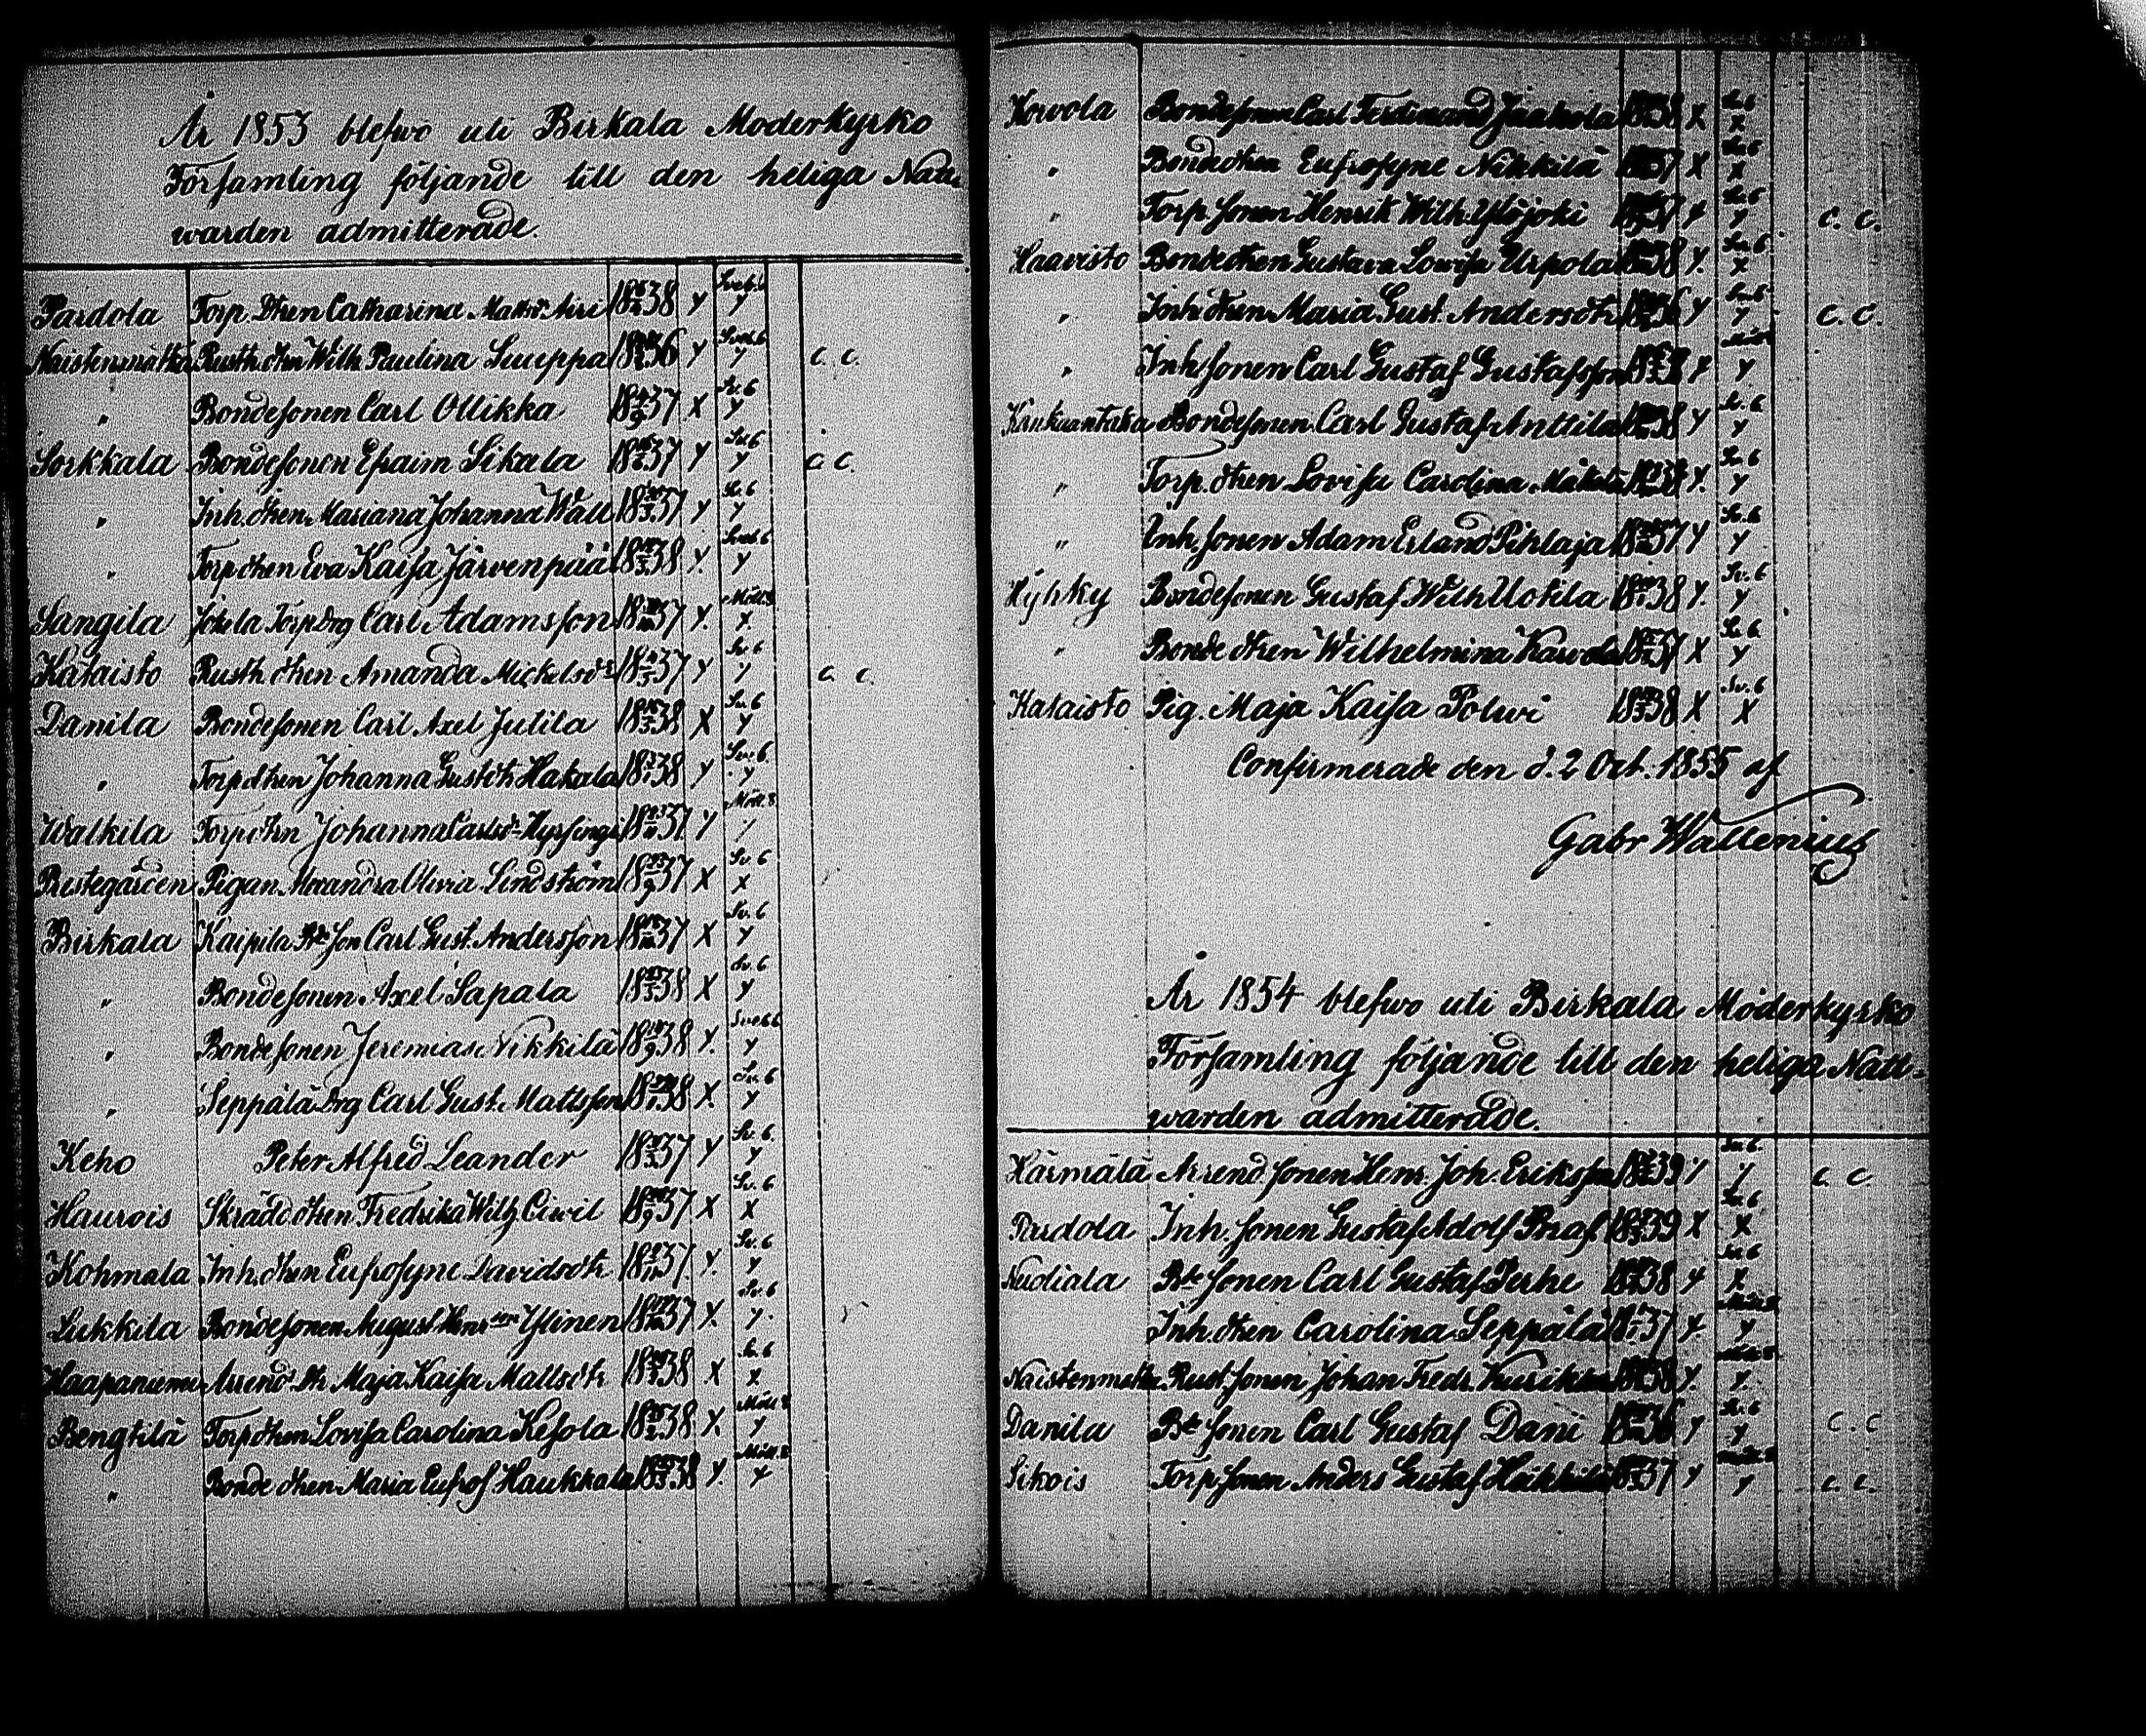 År 1853 blefwo uti Birkala Moderkyrko
Församling följande till den heliga Natt
warden admitterade.
Pardola Torp. dtren Catharina Mattsdr Airi 1838 Y
Naistenmatka Rusth. dtren Wilh. Paulina Suuppa 1836 Y C. C.
" Bondesonen Carl Ollikka 1837 X Sv. 6 Y
Sorkkala Bondesonen Efraim Sikala 1837 Y Sv. 6 Y C. C.
" Inh. dtren Mariana Johanna Wall 1837 Y Sv. 6 Y
" Torp dtren Eva Kaisa Järvenpää 1838 Y. Y
Sangila Jokela Torp Drg Carl Adamsson 1837 Y. X
Kataisto Rusth dtren Amanda Mickelsdr 1837 Y Sv 6 Y C. C.
Danila Bondesonen Carl Axel Jutila 1838 X Sv. 6 Y
" Torp dtren Johanna Gustdtr Hakala 1838 Y Y
Walkila Torp dtrn Johanna Carlsdr 1837 Y Möll. 8
Prestegården Pigan Alexandra Olivia Lindström 1837 X Sv. 6 X
Birkala Kaipila Son Carl Gust. Andersson 1837 X Sv. 6 Y
" Bondesonen Axel Sapala 1838 X Sv. 6 Y
" Bondesonen Jeremias Nikkilä 1838 Y. Y
" Seppälä Drg Carl Gust. Mattsson 1838 X. Sv. 6 Y
Keho Peter Alfred Leander 1837 Y Sv. 6. Y
Haurois Skrädd. dtren Fredrika Wilh Civil 1837 X Sv. 6 X
Kohmala Inh. dtren Eufrosyne Davidsdtr 1837 Y. Sv. 6 Y
Lukkila Bondesonen August Ylinen 1837 Y. Sv. 6 Y.
Arrend Dtr Maja Kaisa Mattsdtr 1838 X Sv. 6 X
Bengtilä Torp dtren Lovisa Carolina Kesola 1838 X. Möll 8 Y
" Bonde dtren Maria Eufros Haukkala 1838 Y. Möll. 8 Y
Korvola Bondesonen Carl Ferdinand Jaakola 1838 X Sv. 6 X
" Bonde dtren Eufrosyne Nikkilä 1837 X Sv. 6 X
" Torp. sonen Henrik Wilh. Ylöjoki 1837 Y Sv. 6 Y C. C.
Haavisto Bonde dtren Gustava Lovisa Urpola 1838 Y. Sv. 6 X
" Inh. dtren Maria Gust. Andersdtr 1836 Y Sv. 6 Y C. C.
" Inh. sonen Carl Gustaf Gustafsson 1838 Y Y
Bondesonen Carl Gustaf Anttila 1838 Y Sv. 6 Y
" Torp. dtren Lovisa Carolina 1838 Y. Sv. 6 Y
" Inh. sonen Adam Erland Pihlaja 1837 Y Sv. 6 Y
Hyhky Bondesonen Gustaf Wilh Uotila 1838 Y. Sv. 6 Y
" Bonde dtren Wilhelmina 1837 X Sv. 6 Y
Kataisto Pig. Maja Kaisa Polwi 1838 X Sv. 6 X
Confirmerade den d. 2 Oct. 1855 af
Gabr Wallenius
År 1854 blefwo uti Birkala Moderkyrko
Församling följande till den heliga Natt-
warden admitterade.
Härmälä Arrend. sonen Henr. Joh. Eriksson 1839 Y Sv. 6. Y C. C
Pardola Inh. sonen Gustaf Adolf Braf 1839 X Sv. 6 X
Nuoliala Bde sonen Carl Gustaf Perhe 1838 Y Sv. 6 X
Inh. dtren Carolina Seppälä 1837 Y. Y
Naistenmatka Rust. sonen Johan Fredr. 1838 Y. Y.
Danila Bde sonen Carl Gustaf Dani 1836 Y Sv. 6 Y C. C
Sikois Torp sonen Anders Gustaf 1837 Y Y C. C.